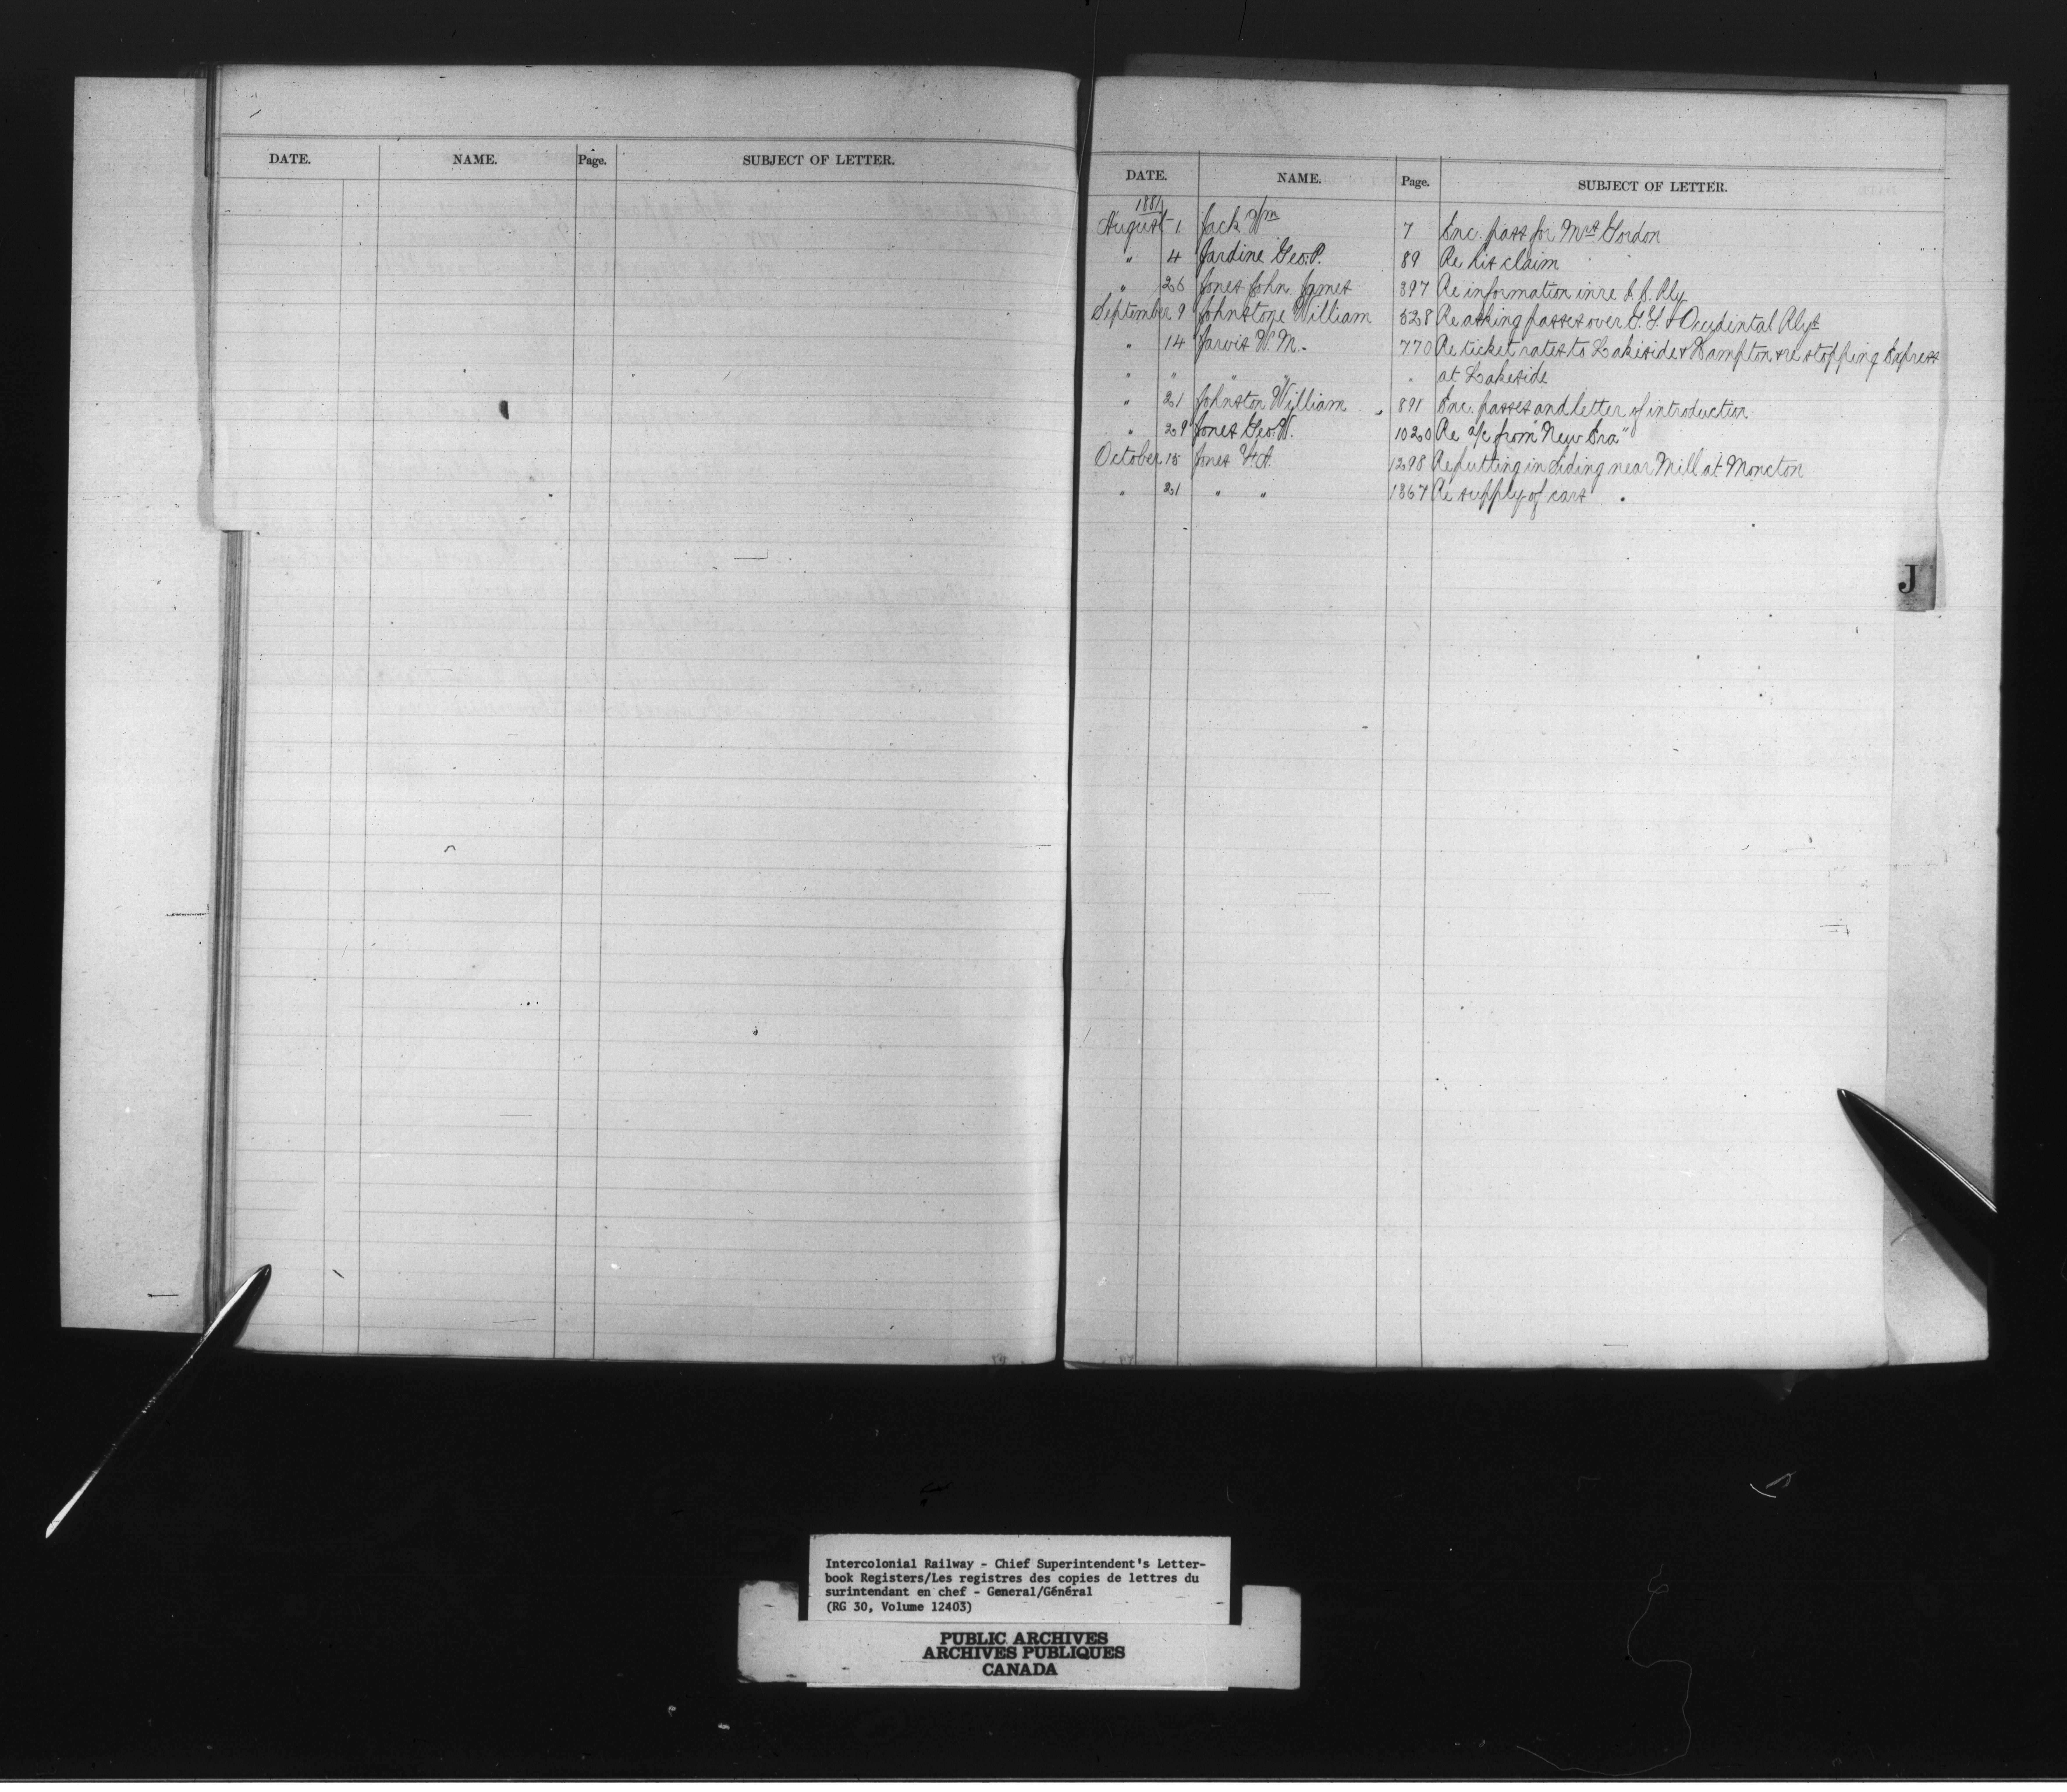 DATE. NAME. Page. SUBJECT OF LETTER.
DATE. NAME. Page. SUBJECT OF LETTER.
1881
August 1 Jack Wm 7 Enc. pass for Mrs Gordon
" 4 Jardine Geo. P. 89 Re his claim
" 26 Jones John James 397 Re information in re I. C. Rly
September 9 Johnstone William 528 Re asking passes over G.T. & Occidintal Rlys
" 14 Jarvis W. M. 770 Re ticket rates to Lakeside & Hampton & re stopping Express
" " " " " at Lakeside
" 21 Johnston William 891 Enc. passes and letter of introduction
" 29 Jones Geo. W. 1020 Re a/c from "New Era"
October 15 Jones 1298 Re putting in siding near Mill at Moncton
" 21 " " 1367 Re supply of cars
J
Intercolonial Railway - Chief Superintendent's Letter-
book Registers/Les registres des copies de lettres du
surintendant en chef - General/Général
(RG 30, Volume 12403)
PUBLIC ARCHIVES
ARCHIVES PUBLIQUES
CANADA